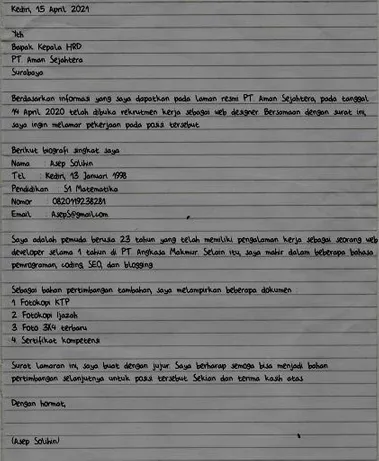 Kediri, 15 April 2021
Yth
Bapak Kepala HRD
PT. Aman Sejahtera
Surabaya
Berdasarkan informasi yang saya dapatkan pada laman resmi PT. Aman Sejahtera, pada tanggal
14 April 2020 telah dibuka rekrutmen kerja sebagai web designer Bersamaan dengan surat ini,
saya ingin melamar pekerjaan pada posisi tersebut
Berikut biografi singkat saya
Nama : Asep Solihin
TTL : Kediri, 13 Januari 1998
Pendidikan : S1 Matematika
Nomor : 0820119238281
Email : AsepS@gmail.com
Saya adalah pemuda berusia 23 tahun yang telah memiliki pengalaman kerja sebagai seorang web
developer selama 1 tahun di PT Angkasa Makmur. Selain itu, saya mahir dalam beberapa bahasa
pemrograman, coding, SEO, dan blogging
Sebagai bahan pertimbangan tambahan, saya melampirkan beberapa dokumen
1 Fotokopi KTP
2 Fotokopi Ijazah
3 Foto 3X4 terbaru
4. Sertifikat kompetensi
Surat lamaran ini, saya buat dengan jujur. Saya berharap semoga bisa menjadi bahan
pertimbangan selanjutnya untuk posisi tersebut Sekian dan terima kasih atas
Dengan hormat,
(Asep Solihin)